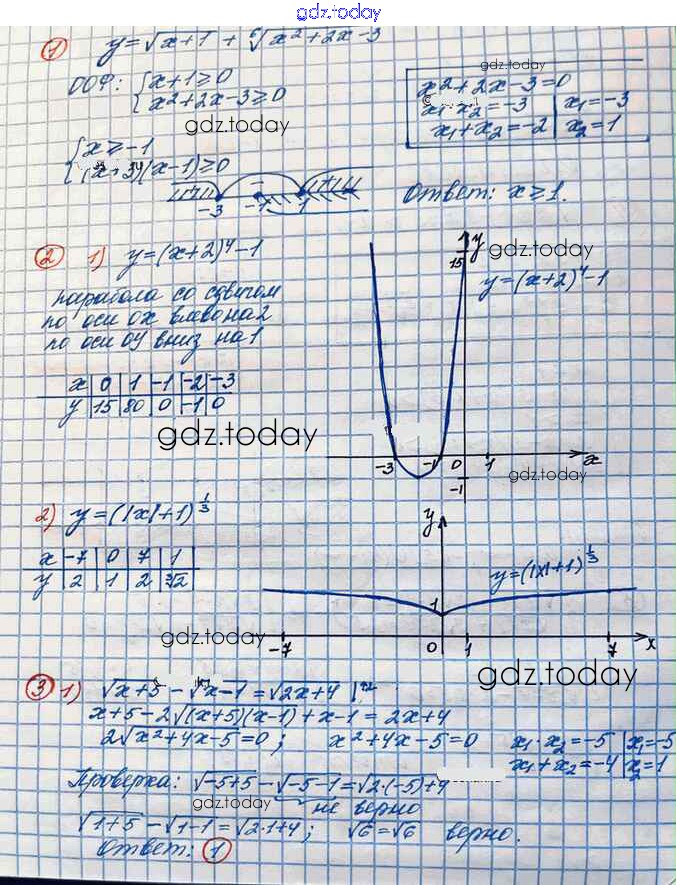 gdz.today
① y=√x+1 + ⁶√x²+2x-3
ООФ: {x+1≥0
x²+2x-3≥0
gdz.today
x²+2x-3=0
x₁·x₂=-3 | x₁=-3
x₁+x₂=-2 | x₂=1
gdz.today
{x≥-1
(x+3)(x-1)≥0
-3 -1 1
Ответ: x≥1.
② 1) y=(x+2)⁴-1
парабола со сдвигом
по оси ОХ влево на 2
по оси ОУ вниз на 1
x | 0 | 1 | -1 | -2 | -3
y | 15 | 80 | 0 | -1 | 0
gdz.today
y
15
gdz.today
y=(x+2)⁴-1
-3 -1 0 1 x
gdz.today
-1
2) y=(|x|+1)^⅓
x | -7 | 0 | 7 | 1
y | 2 | 1 | 2 | ³√2
gdz.today
y
y=(|x|+1)^⅓
1
-7 0 1 7 x
gdz.today
③ 1) √x+5 - √x-1 = √2x+4 |↑²
x+5-2√(x+5)(x-1) + x-1 = 2x+4
2√x²+4x-5=0; x²+4x-5=0
x₁·x₂=-5 | x₁=-5
x₁+x₂=-4 | x₂=1
Проверка: √-5+5 - √-5-1 = √2·(-5)+4
gdz.today
не верно
√1+5 - √1-1 = √2·1+4; √6=√6 верно.
Ответ: 1